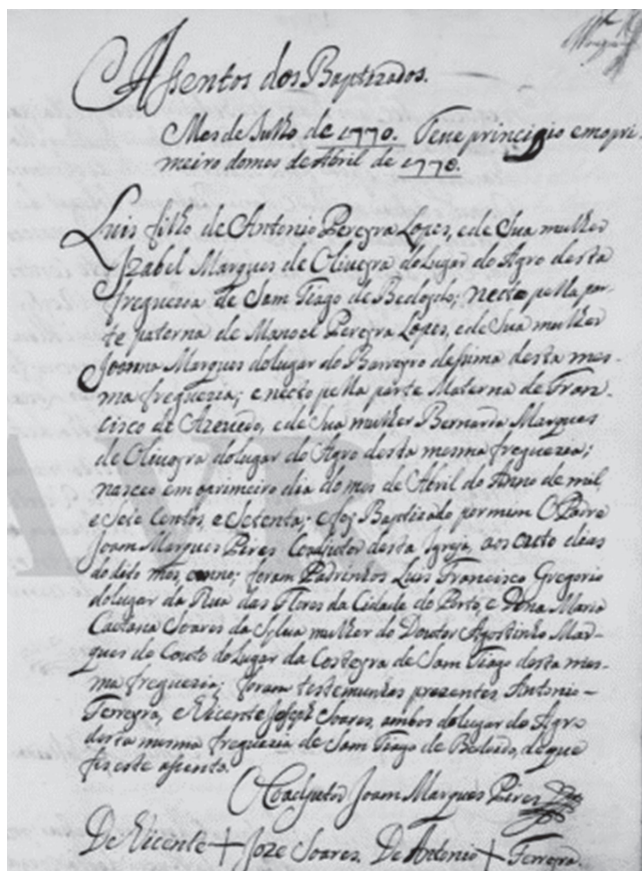 Assentos dos Baptizados.
Mes de Julho de 1770. Teve principio em o pri-
meiro do mes de Abril de 1770.
Luis filho de Antonio Pereyra Lopes, e de Sua mulher
Izabel Marques de Oliveyra do lugar do Agro desta
freguesia de Sam Tiago de Beduido; necto pella par-
te paterna de Manoel Pereyra Lopes, e de Sua mulher
Joanna Marques do lugar do Barreyro da sima desta mes-
ma freguezia; e necto pella parte Materna de Fran-
cisco de Azevedo, e de Sua mulher Bernarda Marques
de Oliveyra do lugar do Agro desta mesma freguezia;
nasceo em o primeiro dia do mes de Abril do Anno de mil
e Sete Centos, e Setenta; e foy Baptizado por mim O Padre
Joam Marques Pires Coadjutor desta Igreja, aos outo dias
do dito mes, e anno; foram Padrinhos Luis Francisco Gregorio
do lugar da Rua das Flores da Cidade do Porto, e Dona Maria
Caetana Soares da Sylva mulher do Doutor Agostinho Mar-
ques do Couto do lugar da Costeyra de Sam Tiago desta mes-
ma freguezia; foram testemunhas prezentes Antonio
Ferreyra, e Vicente Joseph Soares, ambos do lugar do Agro
desta mesma freguezia de Sam Tiago de Beduido, de que
fiz este assento.
O Coadjutor Joam Marques Pires
De Vicente + Joze Soares. De Antonio + Ferreyra.
AVR